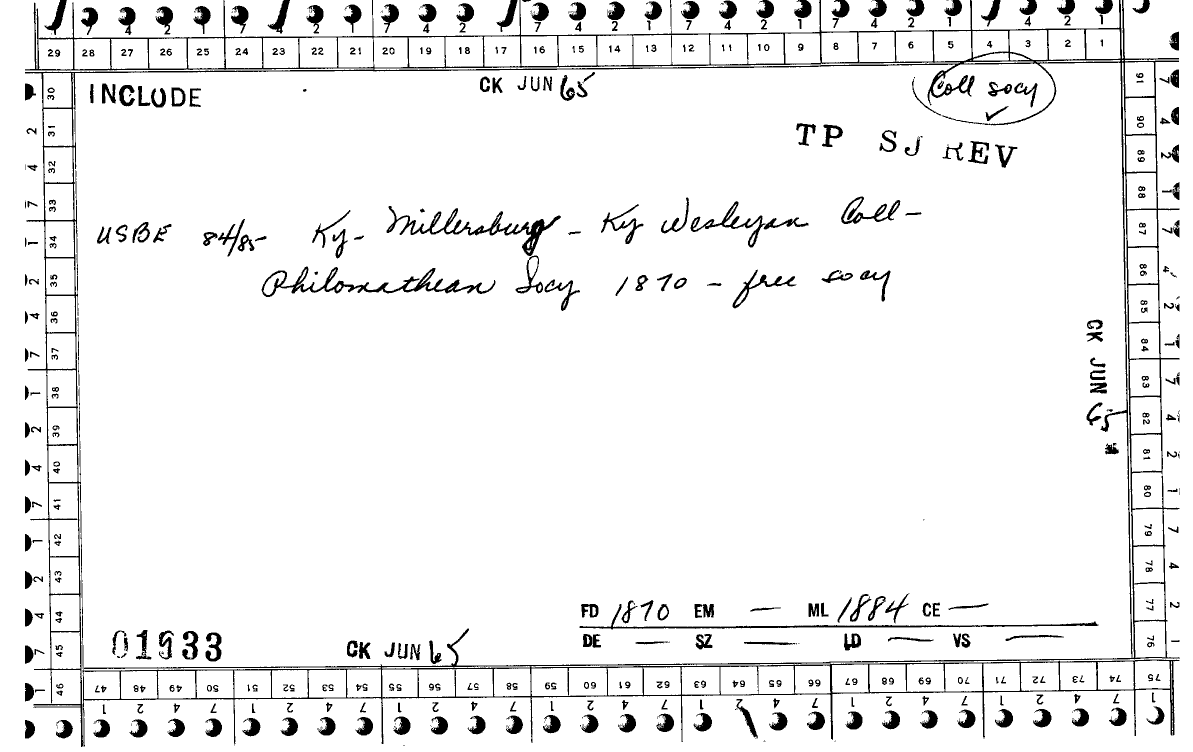 7 4 2 1 7 4 2 1 7 4 2 1 7 4 2 1 7 4 2 1 7 4 2 1
29 28 27 26 25 24 23 22 21 20 19 18 17 16 15 14 13 12 11 10 9 8 7 6 5 4 3 2 1
INCLUDE
CK JUN 65
Coll socy
TP SJ REV
USBE 84/85 Ky- Millersburg - Ky Wesleyan Coll-
Philomathean Socy 1870 - free socy
CK JUN 65
FD 1870 EM — ML 1884 CE —
DE — SZ — LD — VS —
01933
CK JUN 65
30 31 32 33 34 35 36 37 38 39 40 41 42 43 44 45 46
91 90 89 88 87 86 85 84 83 82 81 80 79 78 77 76
47 48 49 50 51 52 53 54 55 56 57 58 59 60 61 62 63 64 65 66 67 68 69 70 71 72 73 74 75